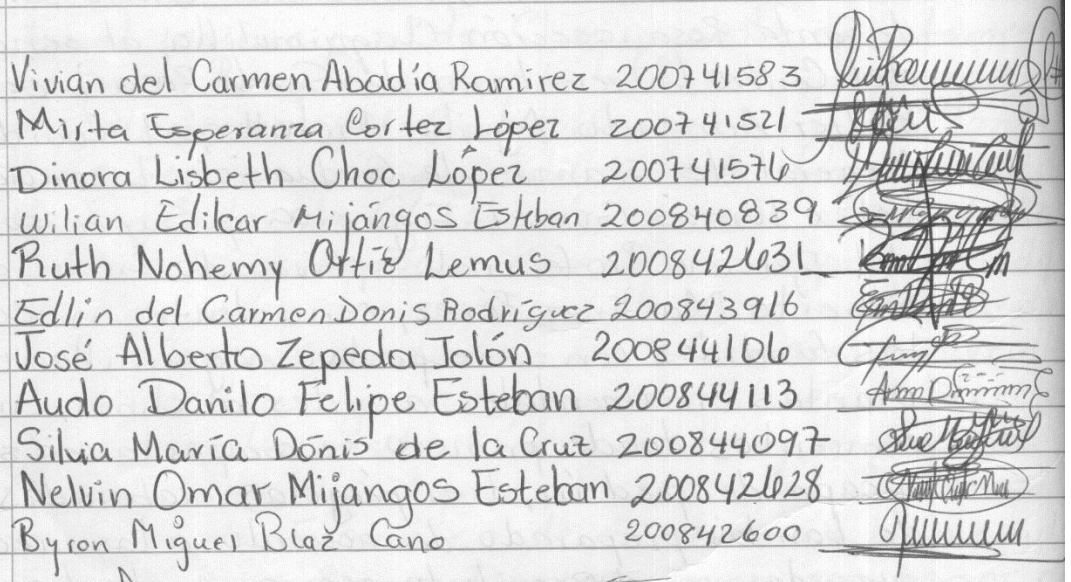 Vivian del Carmen Abadía Ramirez 200741583
Mirta Esperanza Cortez López 200741521
Dinora Lisbeth Choc López 200741576
Wilian Edilcar Mijangos Esteban 200840839
Ruth Nohemy Ortiz Lemus 200842631
Edlin del Carmen Donis Rodríguez 200843916
José Alberto Zepeda Jolón 200844106
Audo Danilo Felipe Esteban 200844113
Silvia María Dónis de la Cruz 200844097
Nelvin Omar Mijangos Esteban 200842628
Byron Miguel Blaz Cano 200842600